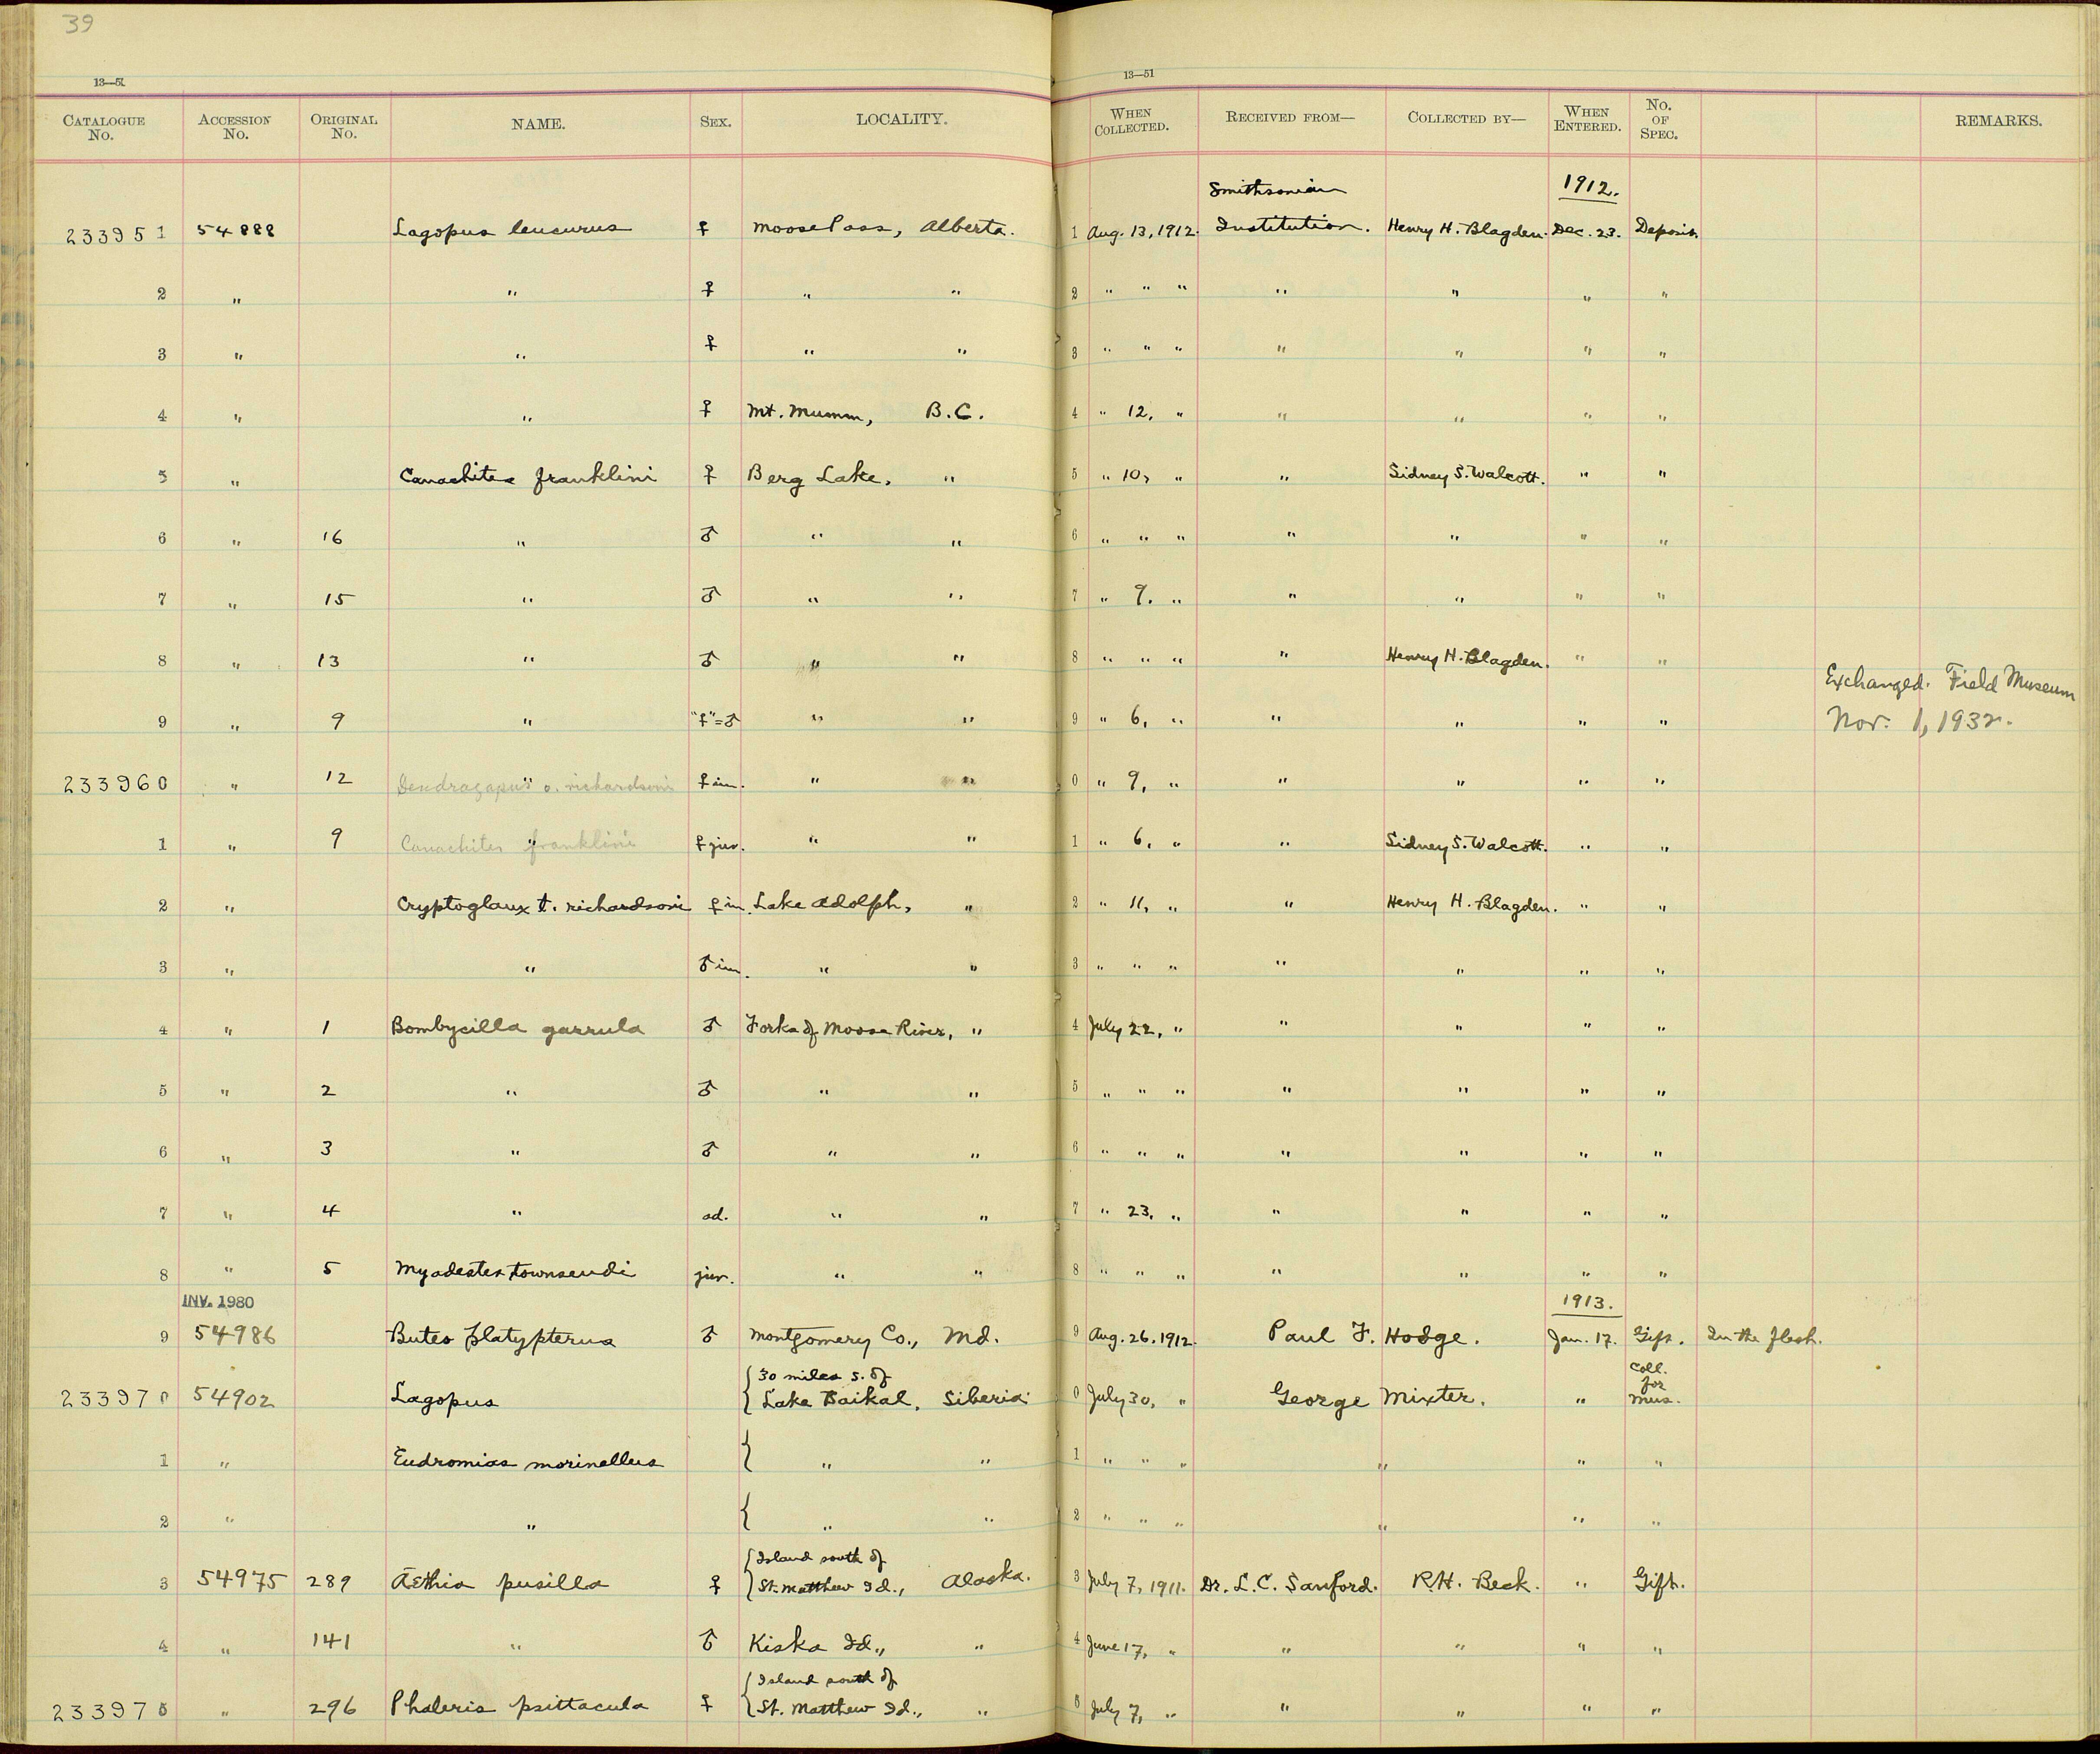 39
13—51
13—51
CATALOGUE No. ACCESSION No. ORIGINAL No. NAME. SEX. LOCALITY. WHEN COLLECTED. RECEIVED FROM— COLLECTED BY— WHEN ENTERED. No. OF SPEC. REMARKS.
Smithsonian 1912.
233951 54888 Lagopus leucurus ♀ Moose Pass, Alberta. 1 Aug. 13, 1912. Institution. Henry H. Blagden. Dec. 23. Deposit.
2 " " ♀ " " 2 " " " " " " "
3 " " ♀ " " 3 " " " " " " "
4 " " ♀ Mt. Mumm, B.C. 4 " 12, " " " " "
5 " Canachites franklini ♀ Berg Lake, " 5 " 10, " " Sidney S. Walcott. " "
6 " 16 " ♂ " " 6 " " " " " " "
7 " 15 " ♂ " " 7 " 9. " " " " "
8 " 13 " ♂ " " 8 " " " " Henry H. Blagden. " "
Exchanged. Field Museum
9 " 9 " "♀"=♂ " " 9 " 6, " " " " " Nov. 1, 1932.
233960 " 12 " Dendragapus o. richardsoni ♀ im. " " 0 " 9, " " " " "
1 " 9 " Canachites franklini ♀ juv. " " 1 " 6, " " Sidney S. Walcott. " "
2 " Cryptoglaux t. richardsoni ♀ im. Lake Adolph, " 2 " 11, " " Henry H. Blagden. " "
3 " " ♂ im. " " 3 " " " " " " "
4 " 1 Bombycilla garrula ♂ Forks of Moose River, " 4 July 22, " " " " "
5 " 2 " ♂ " " 5 " " " " " " "
6 " 3 " ♂ " " 6 " " " " " " "
7 " 4 " ad. " " 7 " 23, " " " " "
8 " 5 Myadestes townsendi juv. " " 8 " " " " " " "
INV. 1980 1913.
9 54986 Buteo platypterus ♂ Montgomery Co., Md. 9 Aug. 26, 1912. Paul F. Hodge. Jan. 17. Gift. In the flesh.
{30 miles S. of Coll. for
233970 54902 Lagopus Lake Baikal, Siberia 0 July 30, " George Mixter. " Mus.
1 " Eudromias morinellus { " " 1 " " " " " "
2 " " { " " 2 " " " " " "
{Island south of
3 54975 289 Aethia pusilla ♀ St. Matthew Id., Alaska. 3 July 7, 1911. Dr. L. C. Sanford. R. H. Beck. " Gift.
4 " 141 " ♂ Kiska Id., " 4 June 17, " " " " "
{Island south of
233975 " 296 Phaleris psittacula ♀ St. Matthew Id., " 5 July 7, " " " " "